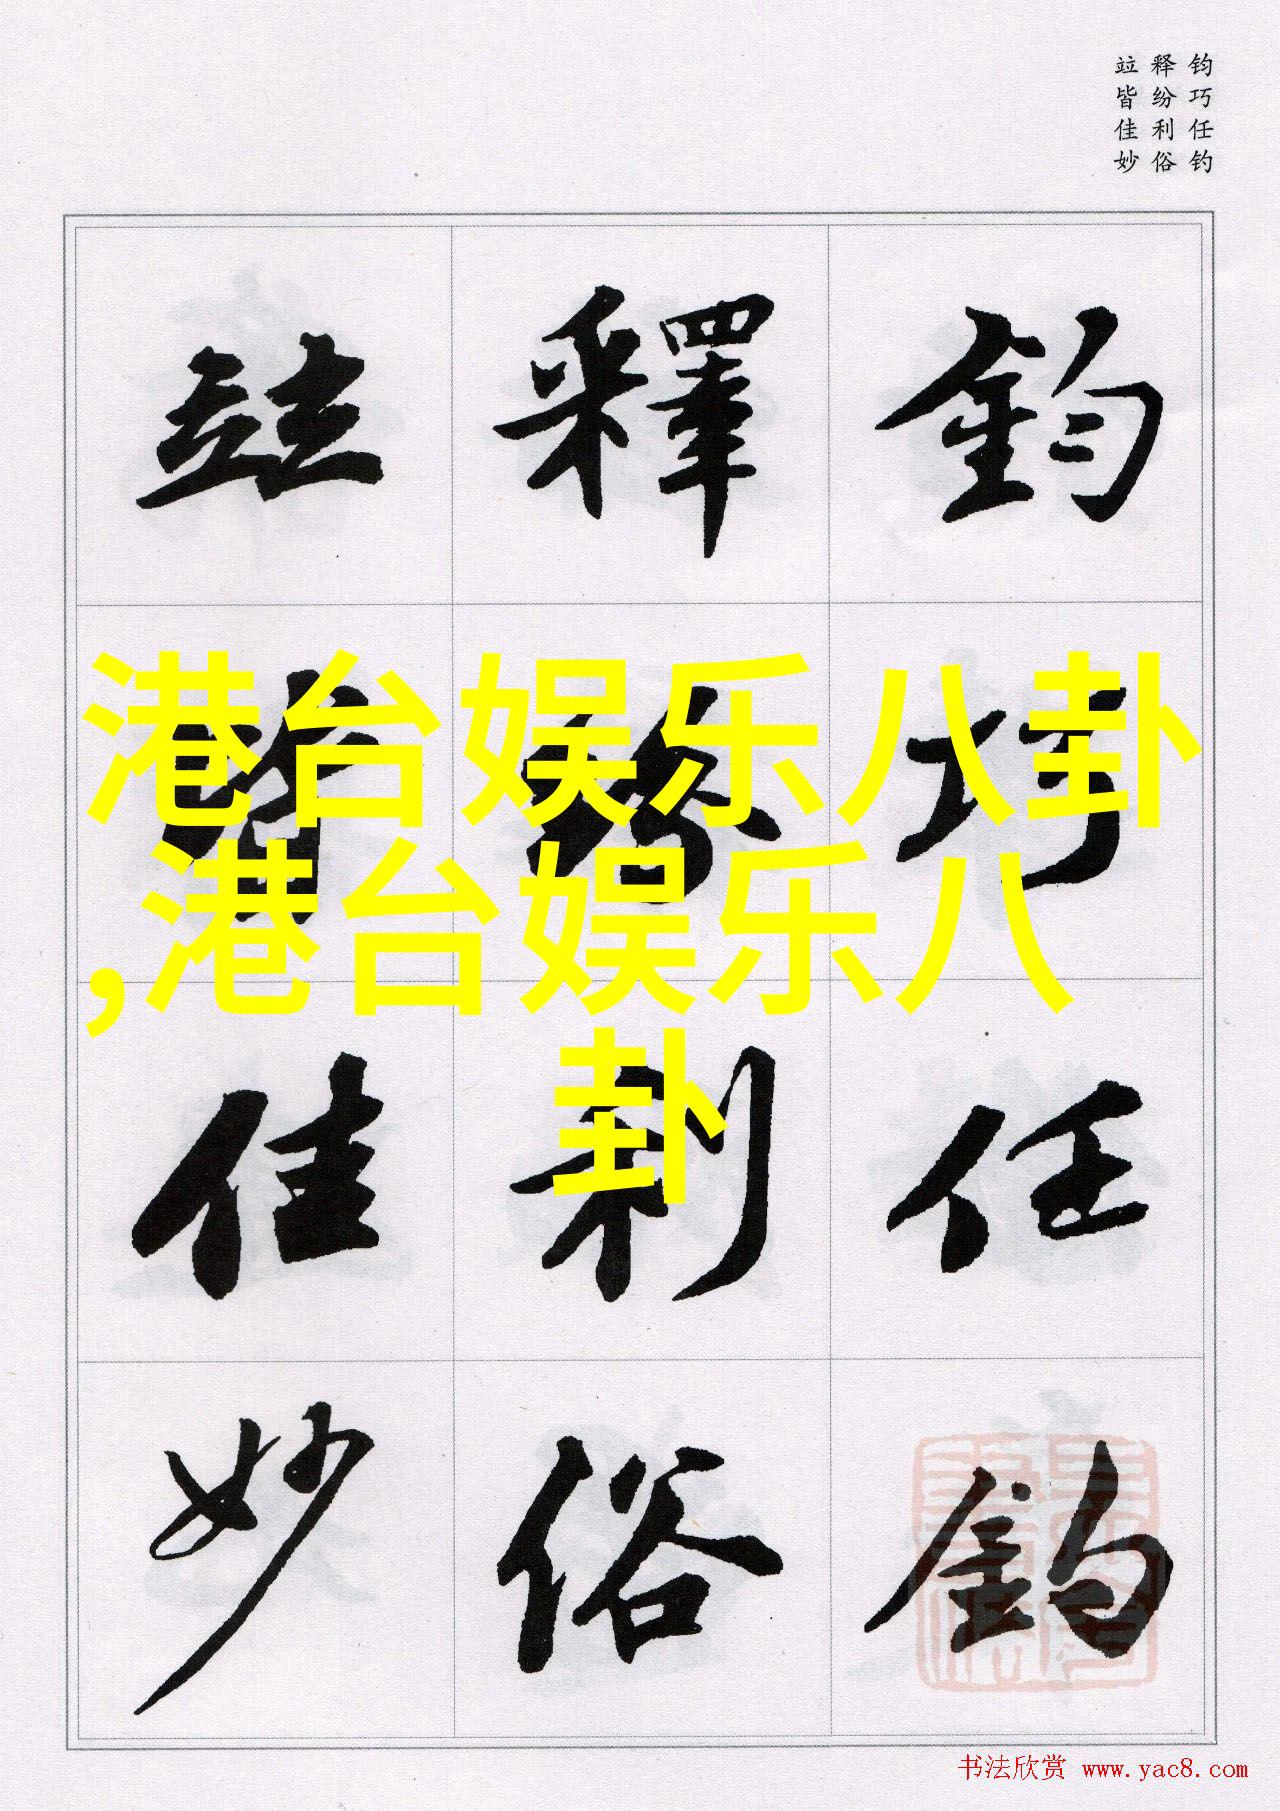 钧巧任钓
释纷利俗
竝皆佳妙
鈞巧任釣
釋紛利俗
竝皆佳妙
港台娱乐八卦
,港台娱乐八
卦
书法欣赏 www.yac8.com